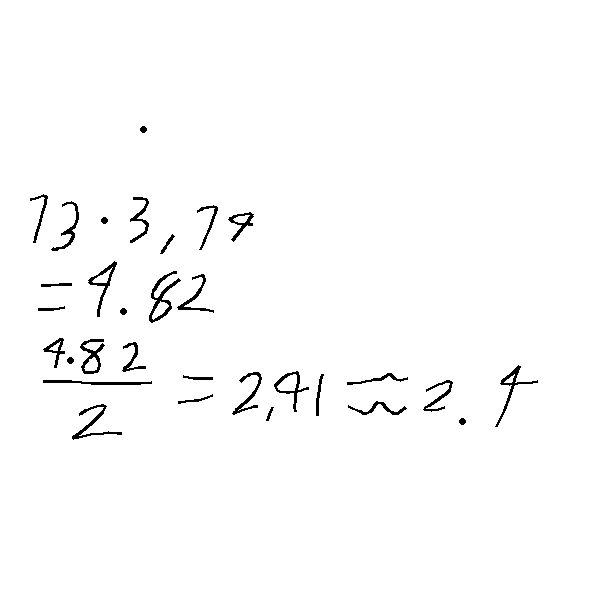 73.3,74
=4.82
4.82/2 = 2,41 ≈ 2.4